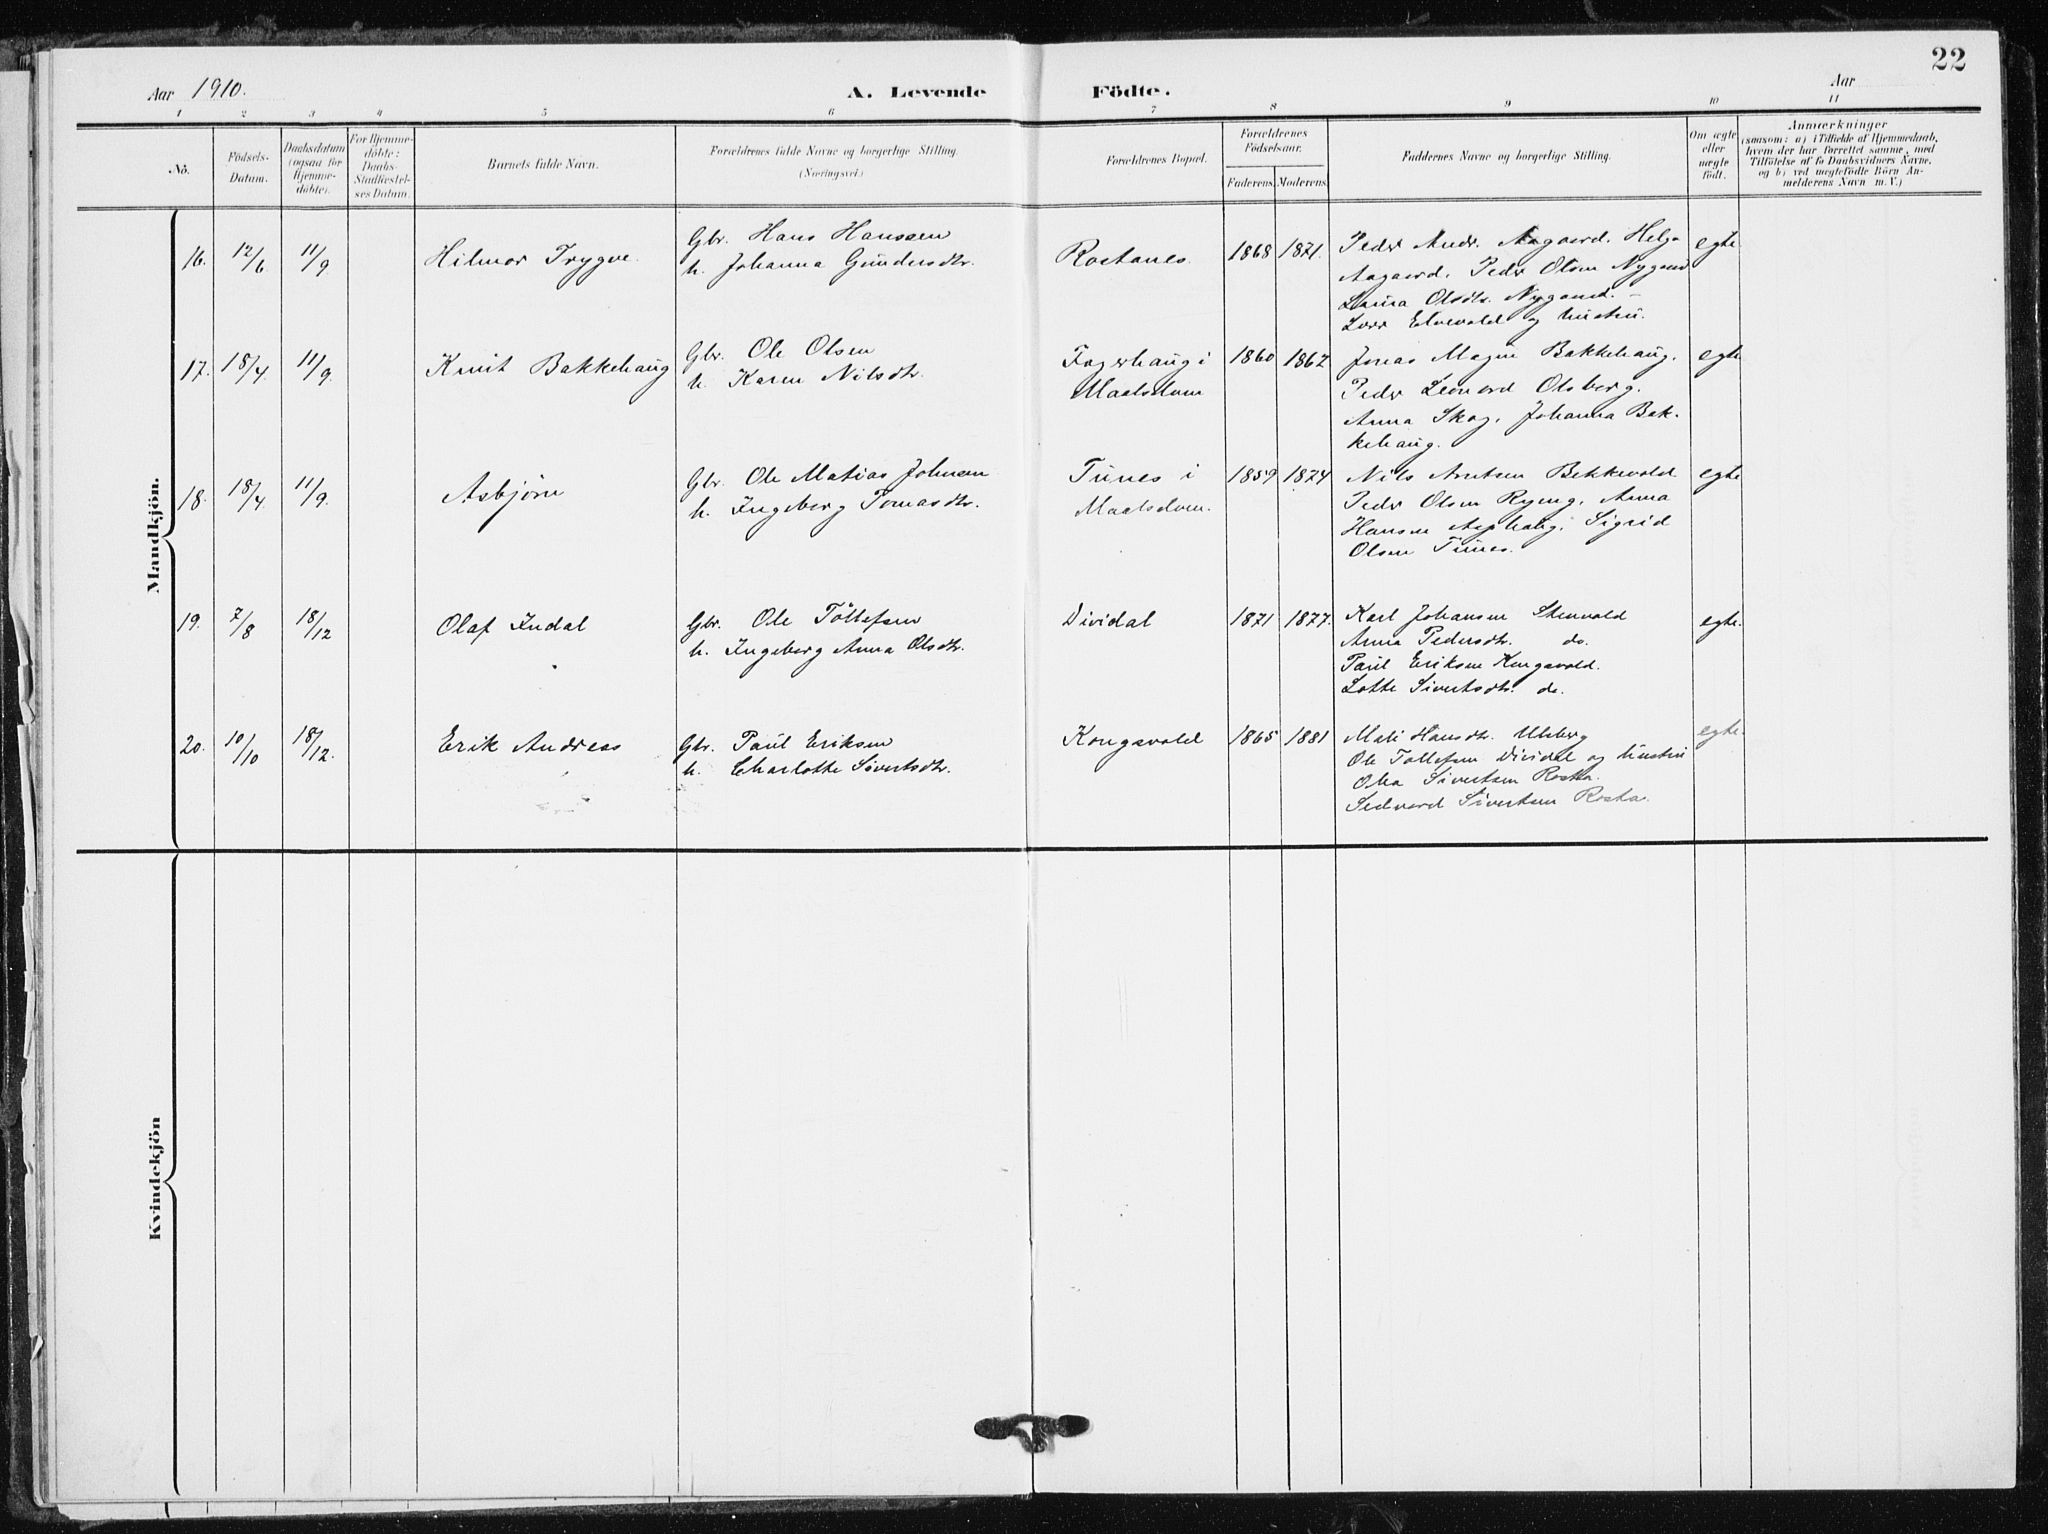 22
Aar 1910.
A. Levende Födte.
Aar
1 2 3 4 5 6 7 8 9 10 11
No.
Födsels-
Datum.
Daabsdatum
(ogsaa for
Hjemme-
döbte).
For Hjemme-
döbte:
Daabs
Stadfæstel-
ses Datum.
Barnets fulde Navn.
Forældrenes fulde Navne og borgerlige Stilling.
(Næringsvei.)
Forældrenes Bopæl.
Forældrenes
Födselsaar.
Faderens. Moderens.
Faddernes Navne og borgerlige Stilling.
Om ægte
eller
uægte
födt.
Anmærkninger
(saasom: a) i Tilfælde af Hjemmedaab,
hvem der har forrettet samme, med
Tilföielse af to Daabsvidners Navne,
og b) ved uægtefödte Börn An-
melderens Navn m. V.)
Mandkjön.
16. 12/6 11/9 Hilmor Trygve. Gbr. Hans Hanssen
h. Johanna Gundersdtr.
Rostanes. 1868 1871. Peder Andr. Aagaard. Helga
Aagaard. Peder Olsen Nygaard
Laura Olsdtr. Nygaard. –
Lars Elvevold og hustru.
egte
17. 18/4 11/9. Knut Bakkehaug Gbr. Ole Olsen
h. Karen Nilsdtr.
Fagerhaug i
Maalsdom
1860 1862 Jonas Bakkehaug.
Peder Leonard Olsberg.
Anna Skog. Johanna Bak-
kehaug.
egte.
18. 18/4 11/9. Asbjörn Gbr. Ole Matias Johnsen
h. Ingeborg Tomasdtr.
Tunes i
Maalsdom.
1859 1874 Nils Arntsen Bakkevold
Peder Olsen Ryeng. Anna
Hansen Asphaug. Sigrid
Olsen Tunes.
egte
19. 7/8 18/12 Olaf Indal Gbr. Ole Töllefsen
h. Ingeborg Anna Olsdtr.
Dividal 1871 1877. Karl Johansen Stenvold
Anna Pedersdtr. do.
Paul Eriksen Kongsvold.
Lotte Sivertsdtr. do.
egte.
20. 10/10 18/12. Erik Andreas Gbr. Paul Eriksen
h. Charlotte Sivertsdtr.
Kongsvold 1865 1881 Mali Hansdtr. Ulsberg
Ole Tollefsen Dividal og hustru
Oha Sivertsen Rosta.
Sedvard Sivertsen Rosta.
egte.
Kvindekjön